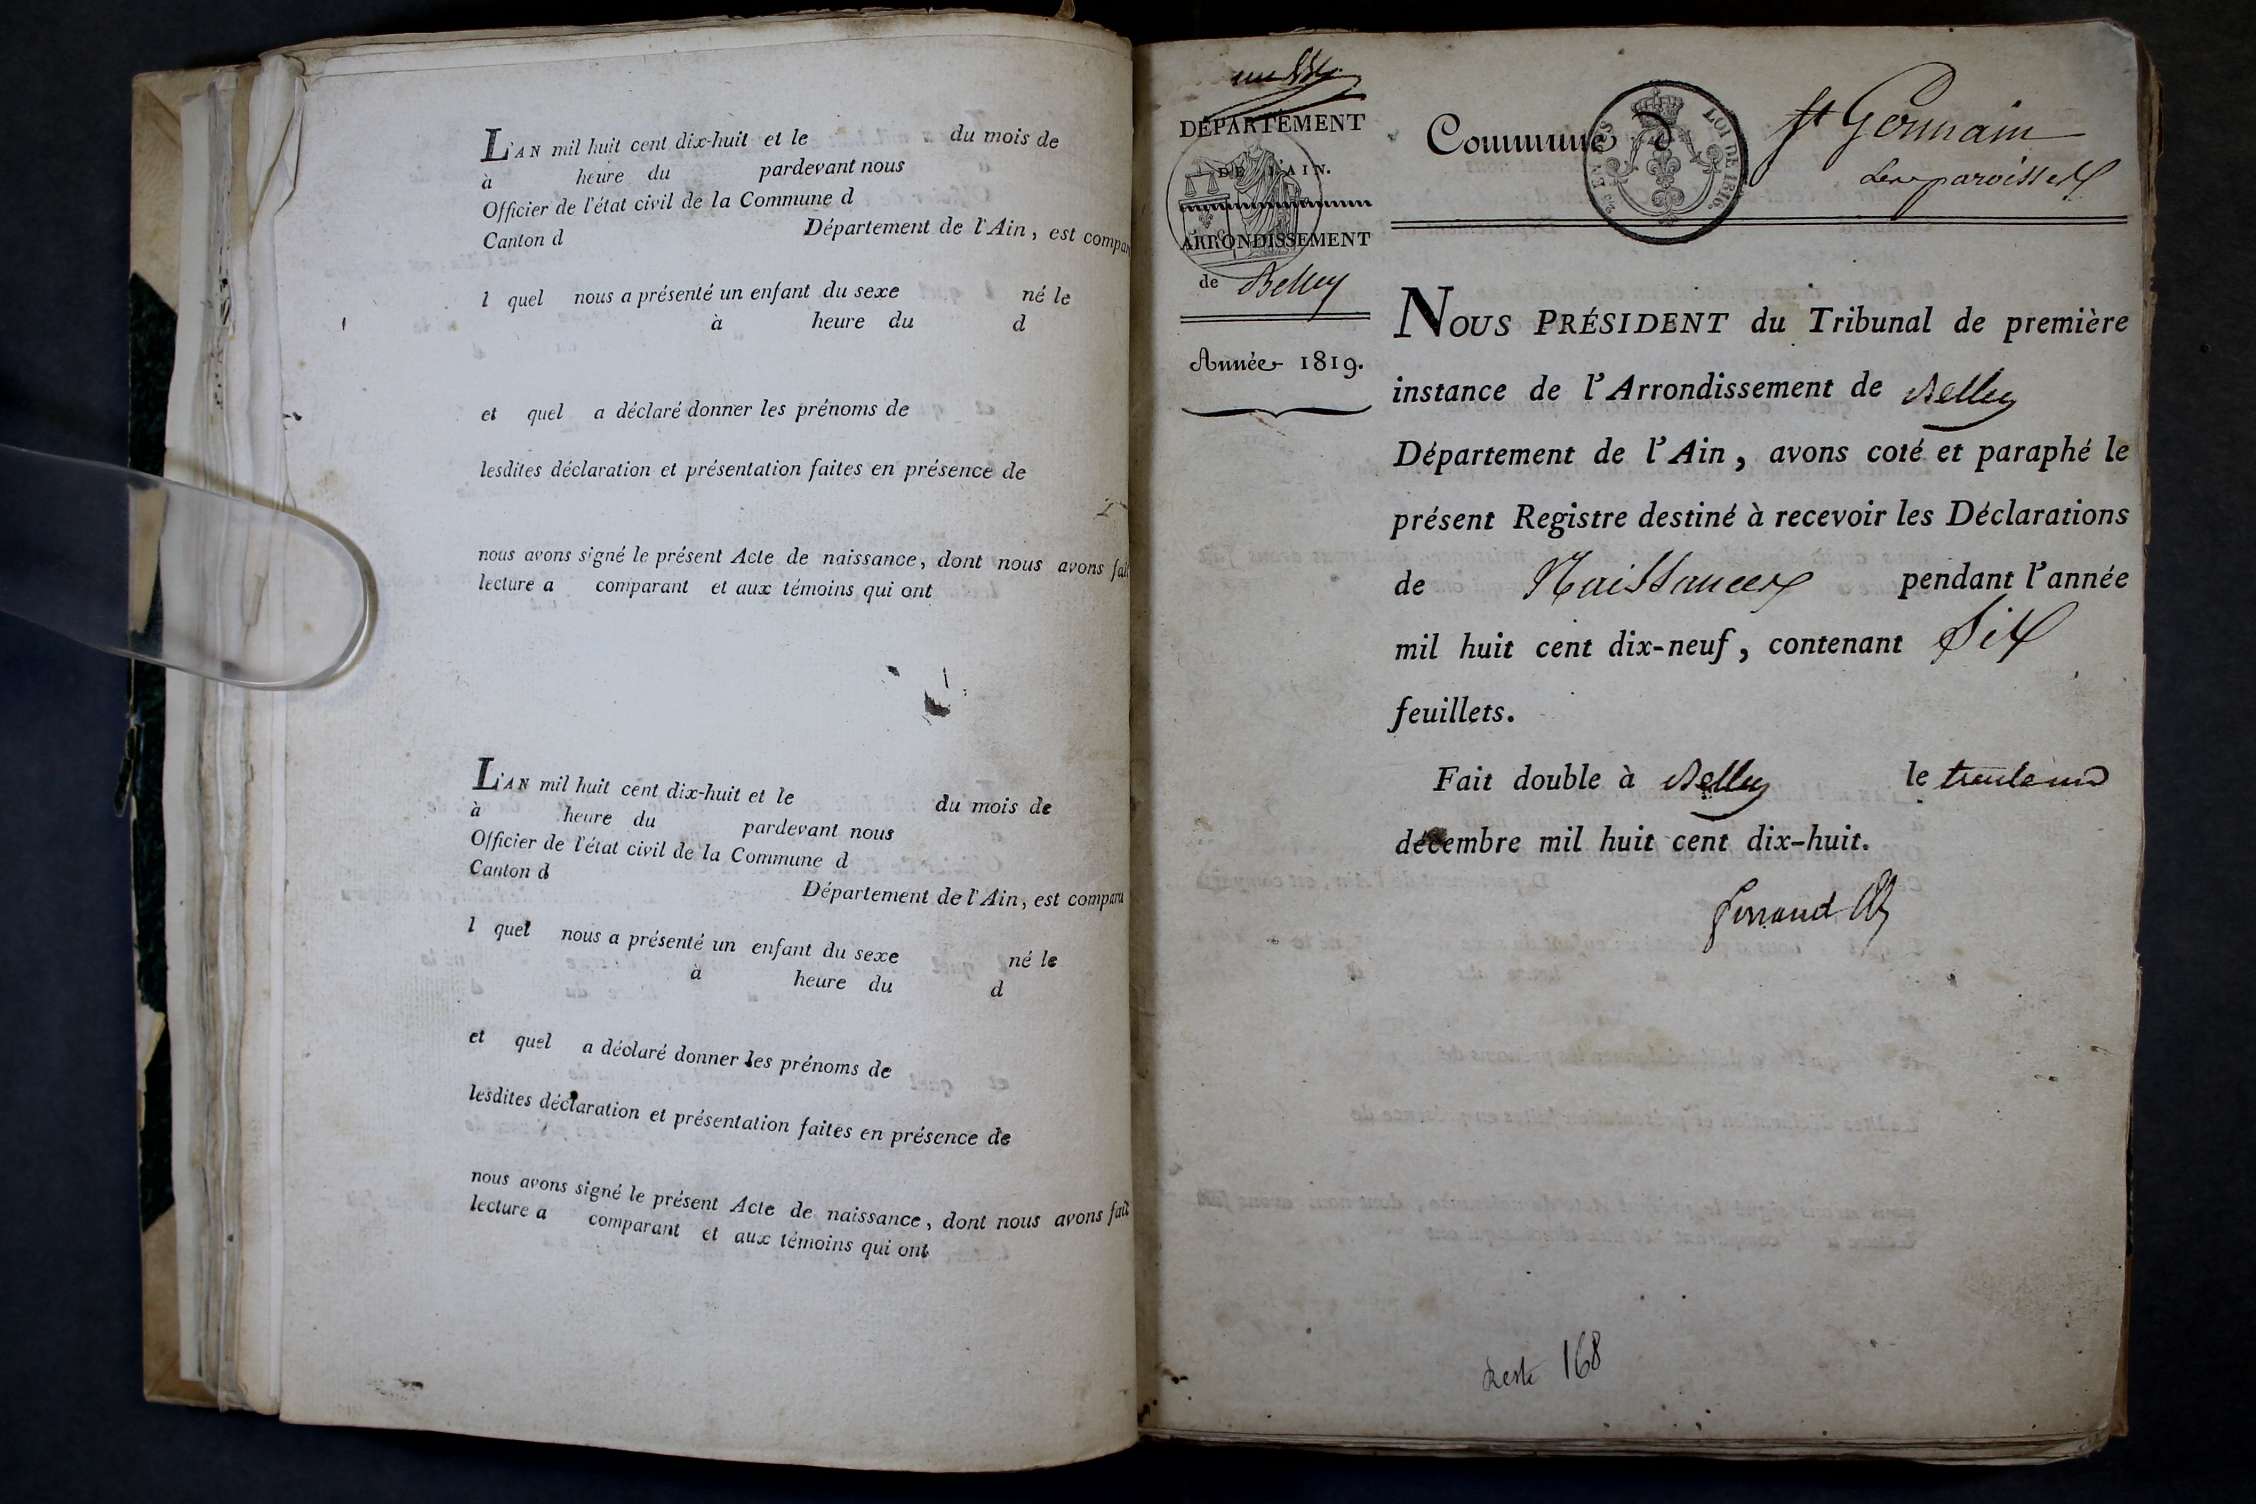 L'AN mil huit cent dix-huit et le du mois de
à heure du pardevant nous
Officier de l'état civil de la Commune d
Canton d Département de l'Ain, est compar
l quel nous a présenté un enfant du sexe né le
à heure du d
et quel a déclaré donner les prénoms de
lesdites déclaration et présentation faites en présence de
nous avons signé le présent Acte de naissance, dont nous avons fait
lecture a comparant et aux témoins qui ont
L'AN mil huit cent dix-huit et le du mois de
à heure du pardevant nous
Officier de l'état civil de la Commune d
Canton d
Département de l'Ain, est comparu
l quel nous a présenté un enfant du sexe né le
à heure du d
et quel a déclaré donner les prénoms de
lesdites déclaration et présentation faites en présence de
nous avons signé le présent Acte de naissance, dont nous avons fait
lecture a comparant et aux témoins qui ont
DÉPARTEMENT
DE L'AIN.
ARRONDISSEMENT
de Belley
Année 1819.
Commune d St Germain
Les paroisses
LOI DE 1816.
NOUS PRÉSIDENT du Tribunal de première
instance de l'Arrondissement de Belley
Département de l'Ain, avons coté et paraphé le
présent Registre destiné à recevoir les Déclarations
de Naissances pendant l'année
mil huit cent dix-neuf, contenant Six
feuillets.
Fait double à Belley le trente un
décembre mil huit cent dix-huit.
Ferrand
reste 168